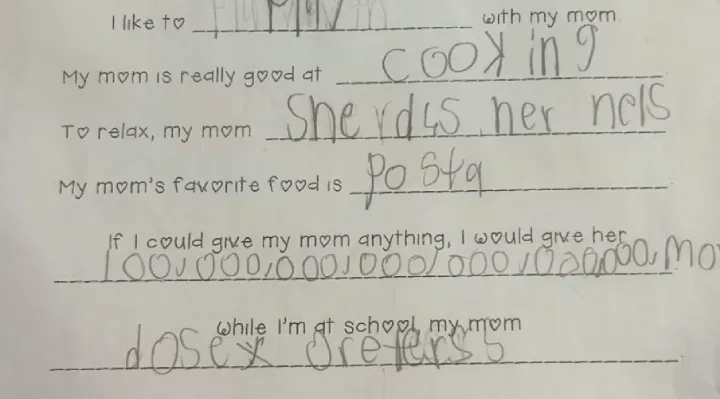 I like to with my mom
My mom is really good at cooking
To relax, my mom She rdis her nels
My mom's favorite food is Posta
If I could give my mom anything, I would give her
100,000,000,000,000,000,000, Mo
While I'm at school, my mom
dose x